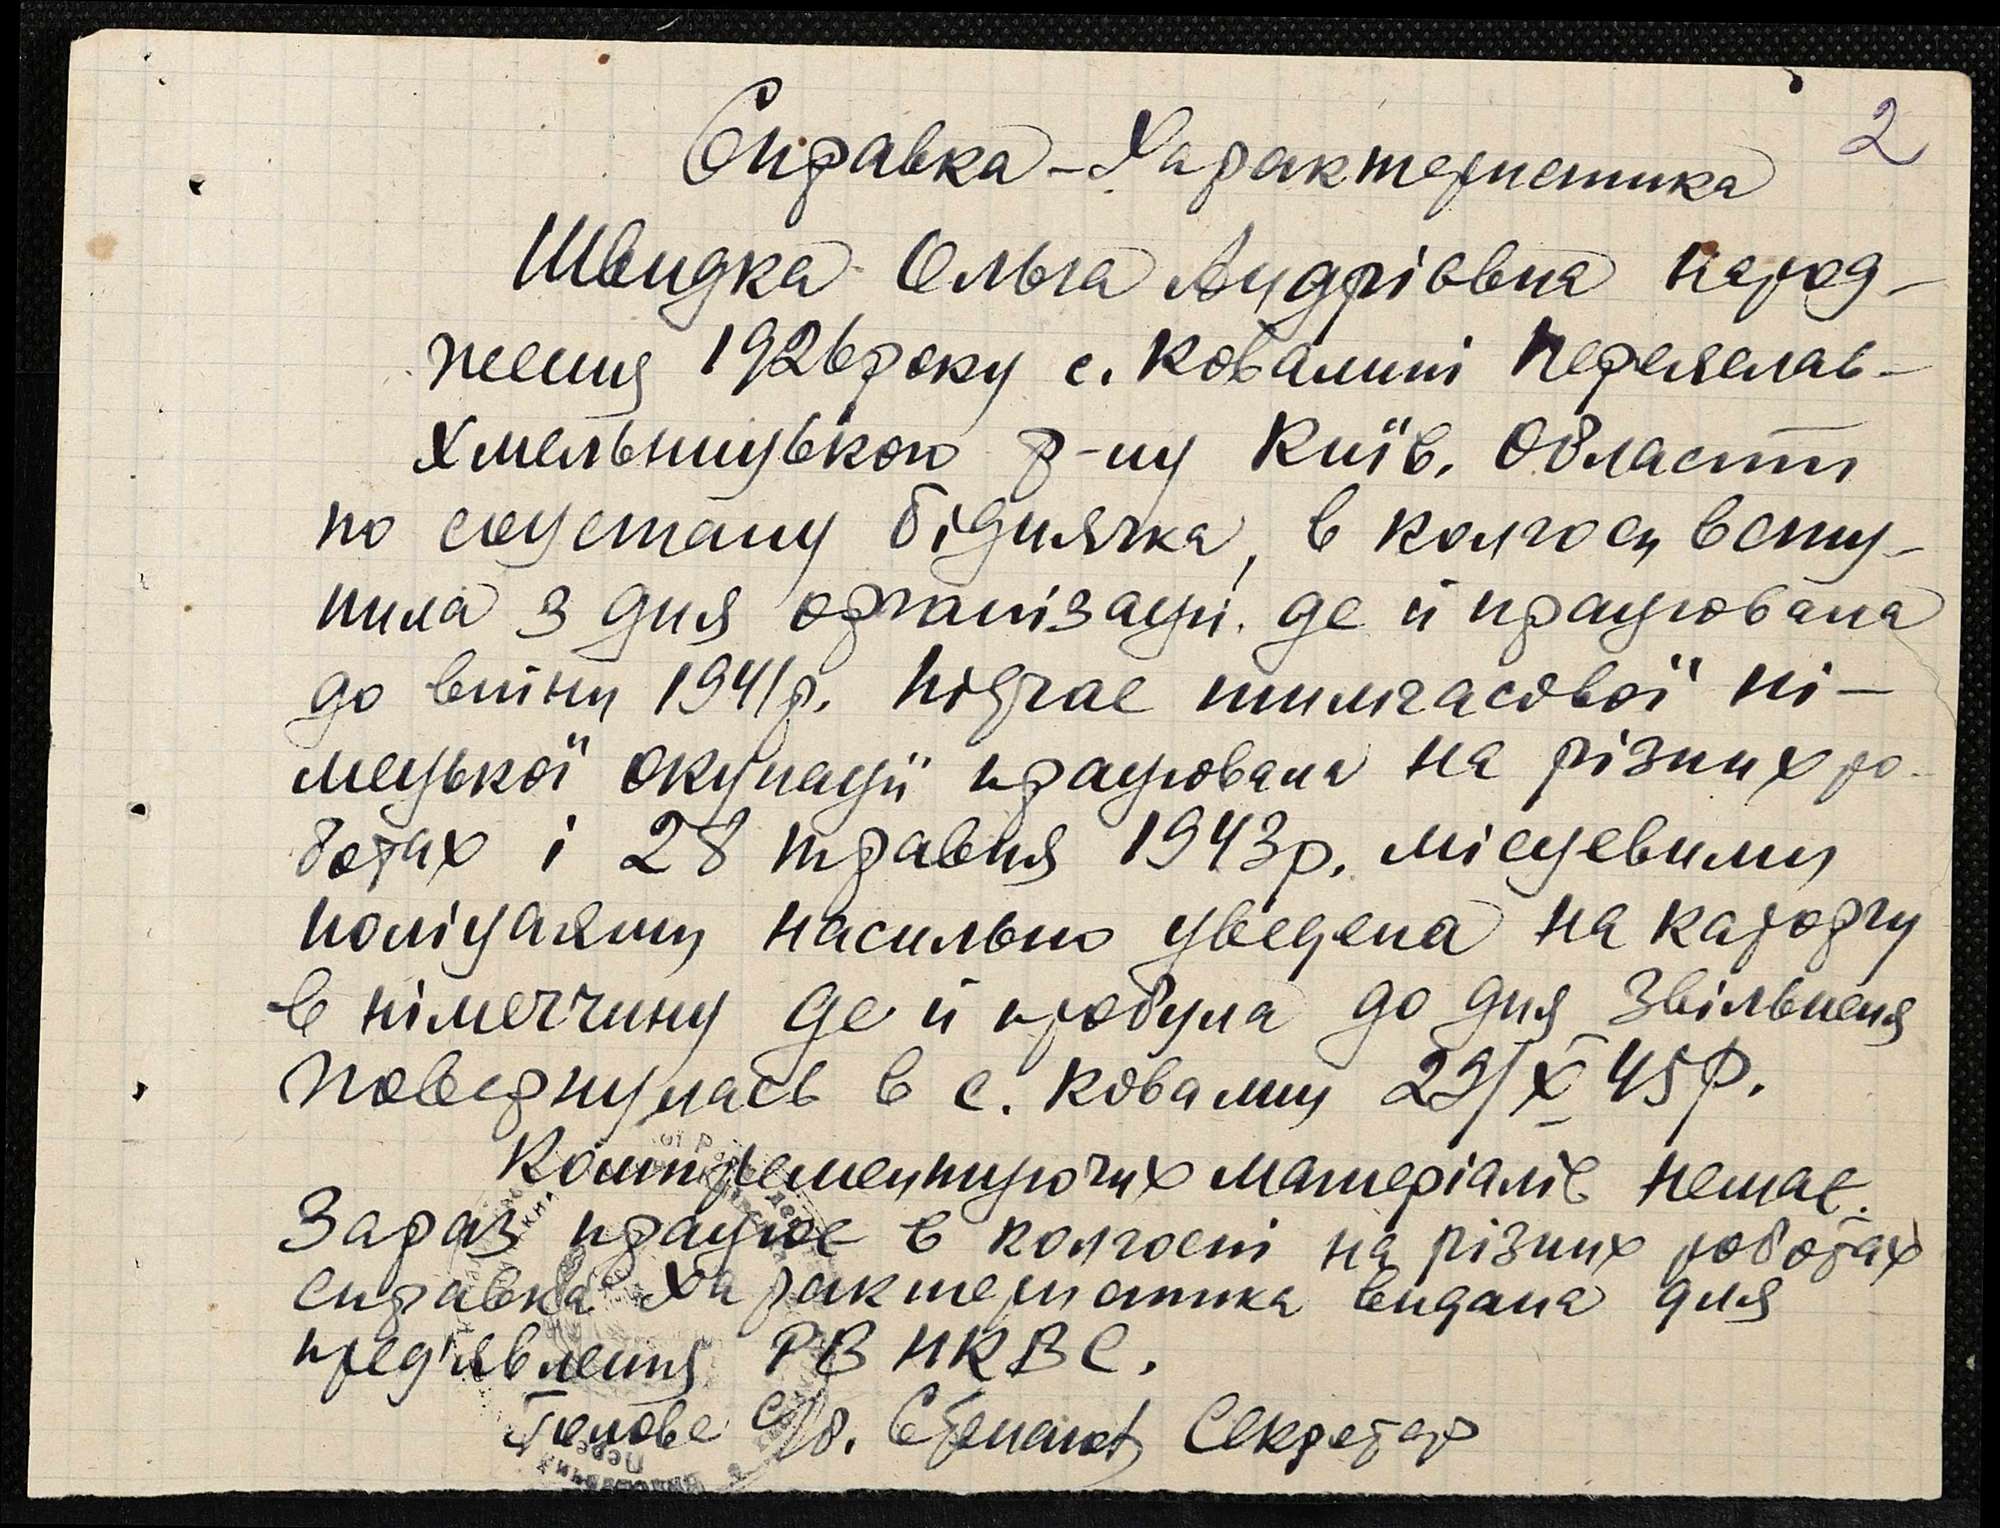 2
Справка-Характеристика
Швидка Ольга Андріовна народ-
ження 1926 року с. Ковалині Переяслав-
Хмельницького р-ну Київ. Области
по соцстану біднячка, в колгосп всту-
пила з дня організації. де й працювала
до війни 1941 р. Підчас тимчасової ні-
мецької окупації працювала на різних ро-
ботах і 28 травня 1943 р. місцевими
поліцаями насильно уведена на каторгу
в німеччину де й пробула до дня звільненя
повернулась в с. Ковалин 29/X 45 р.
Компрементуючих матеріалів немає.
Зараз працює в колгоспі на різних роботах
справка характеристика видана для
пред'явлення РВ НКВС.
Голова С/в. Секретар